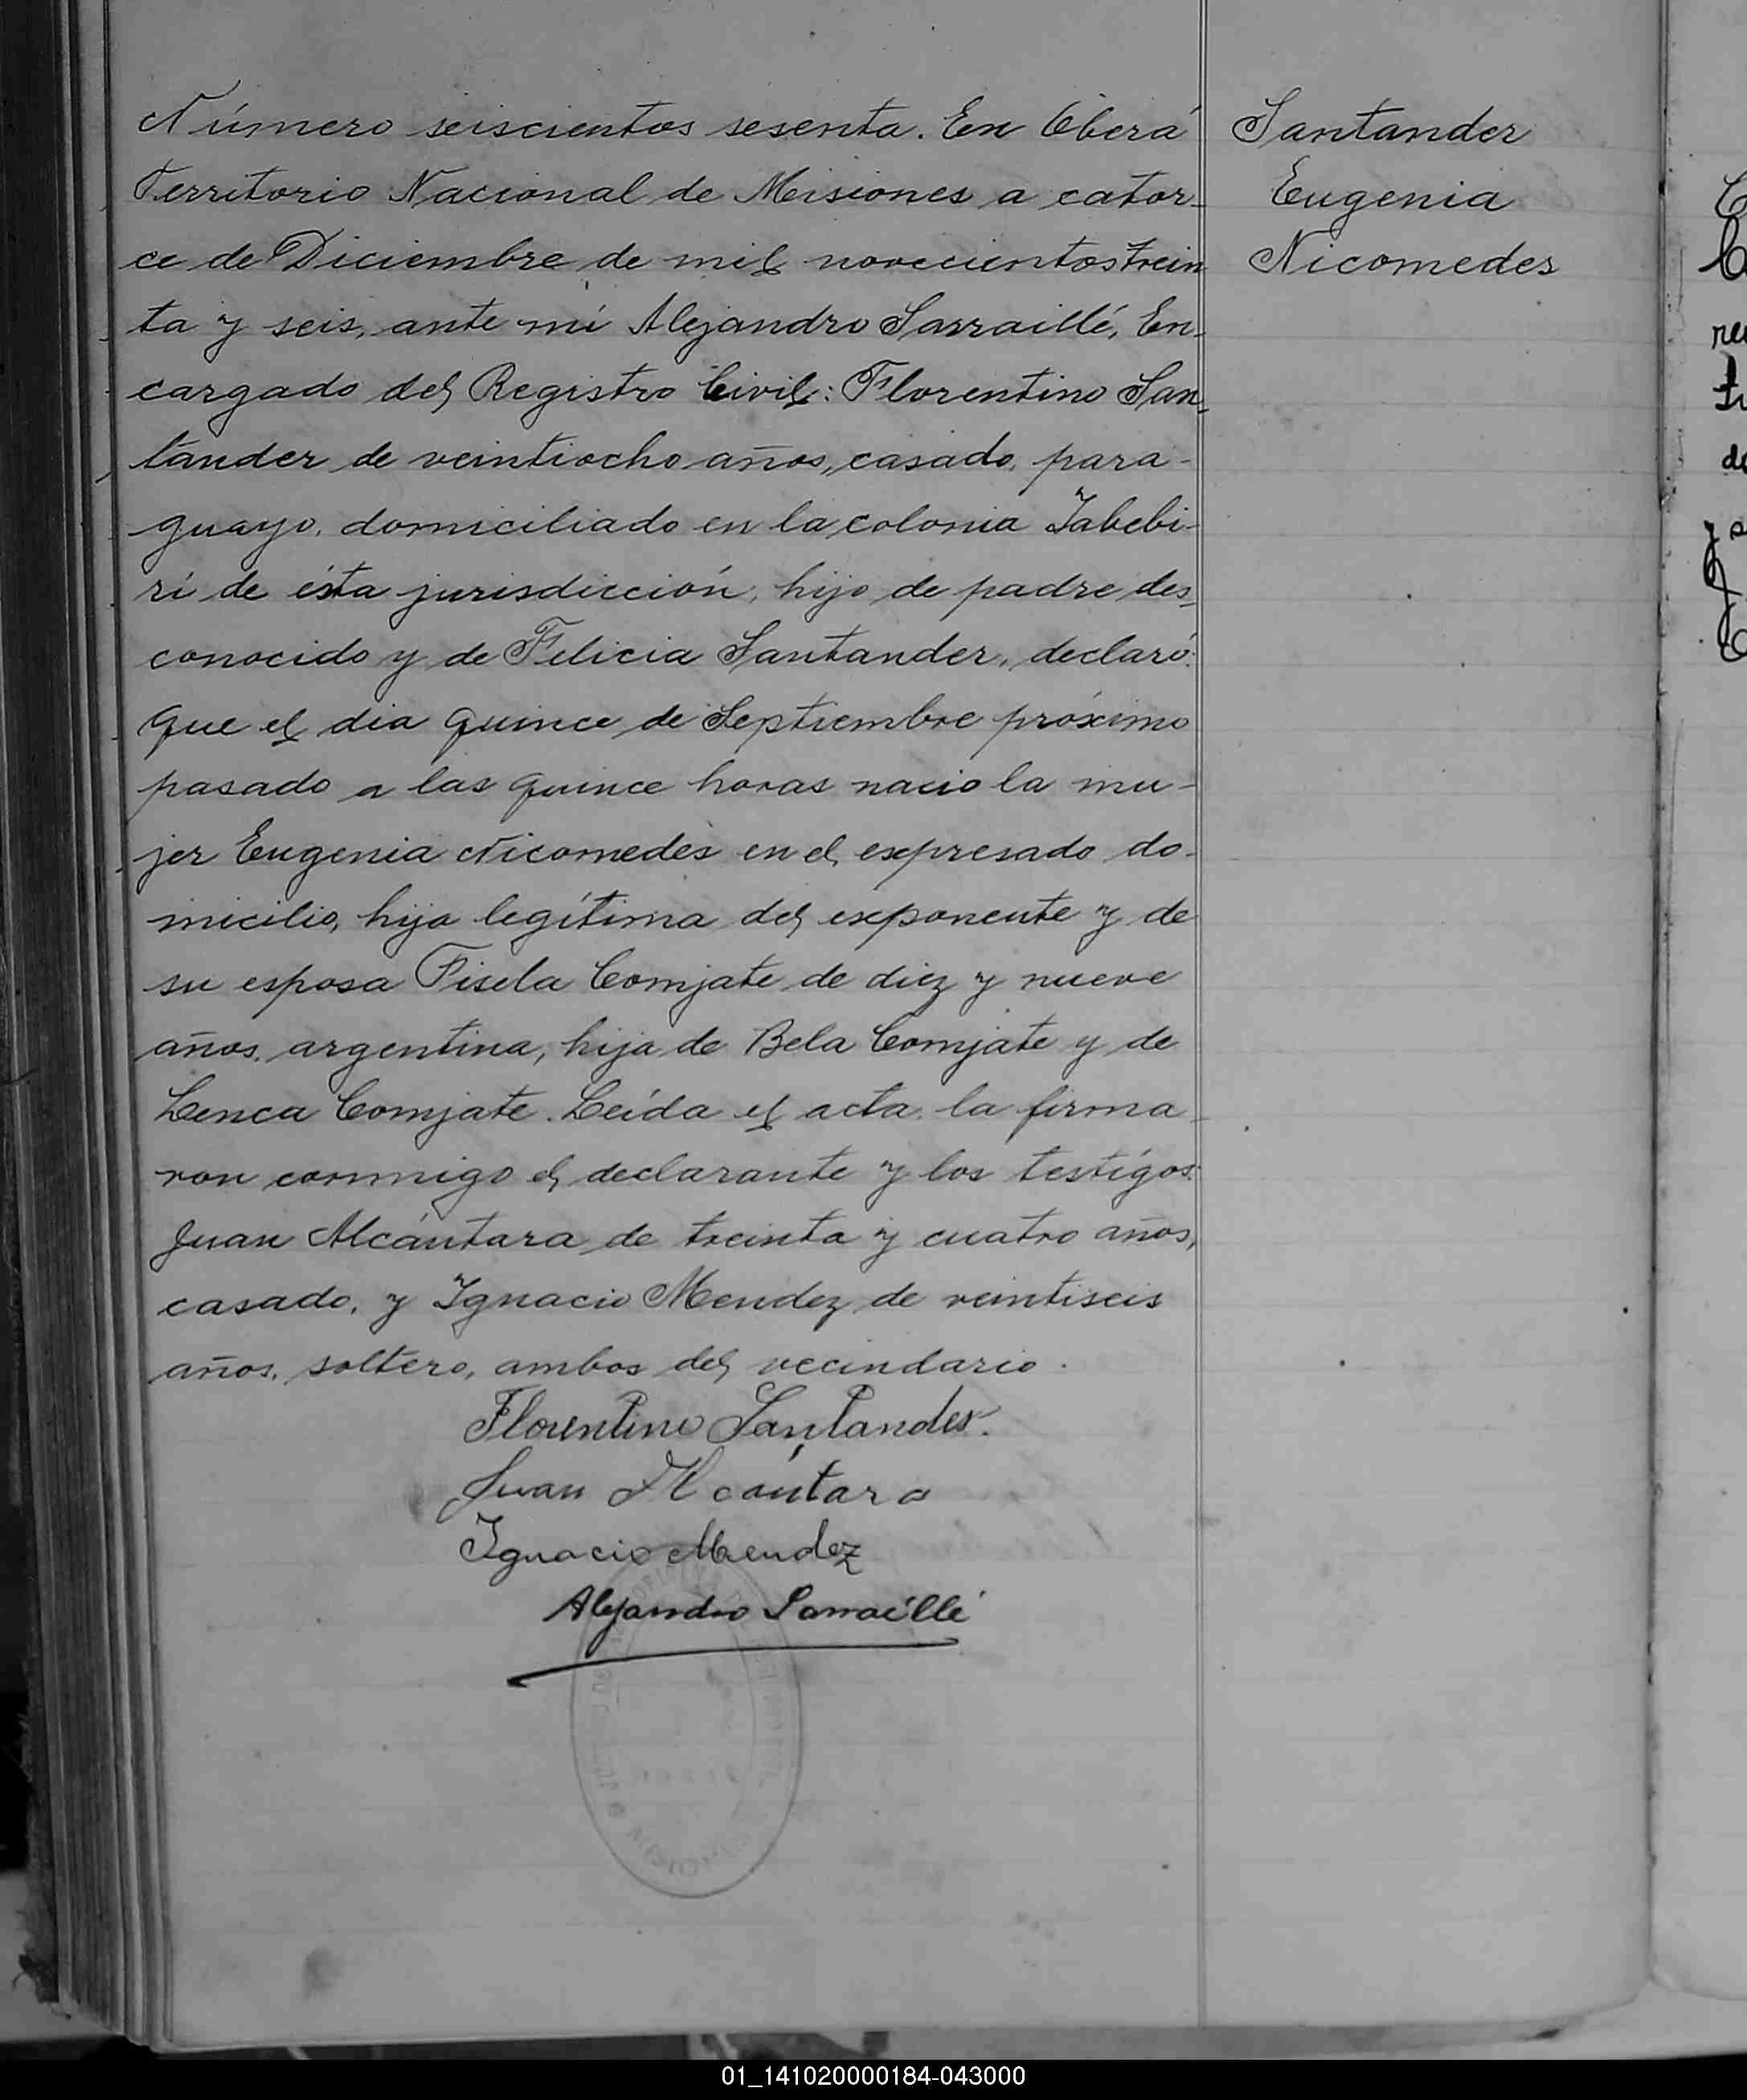 Número seiscientos sesenta. En Oberá
Territorio Nacional de Misiones a cator-
ce de Diciembre de mil novecientos trein
ta y seis, ante mí Alejandro Sarraillé, En-
cargado del Registro Civil: Florentino San-
tander de veintiocho años, casado, para-
guayo, domiciliado en la colonia Yabebi-
rí de ésta jurisdicción, hijo de padre des-
conocido y de Felicia Santander, declaró:
Que el dia quince de Septiembre próximo
pasado a las quince horas nacio la mu-
jer Eugenia Nicomedes en el expresado do-
micilio, hija legítima del exponente y de
su esposa Pisela Comjate de diez y nueve
años, argentina, hija de Bela Comjate y de
Lenca Comjate. Leída el acta, la firma-
ron conmigo el declarante y los testigos:
Juan Alcántara de treinta y cuatro años,
casado, y Ignacio Mendez de veintiseis
años, soltero, ambos del vecindario.
Florentino Santander.
Juan Alcántara
Ignacio Mendez
Alejandro Sarraillé
Santander
Eugenia
Nicomedes
01_141020000184-043000